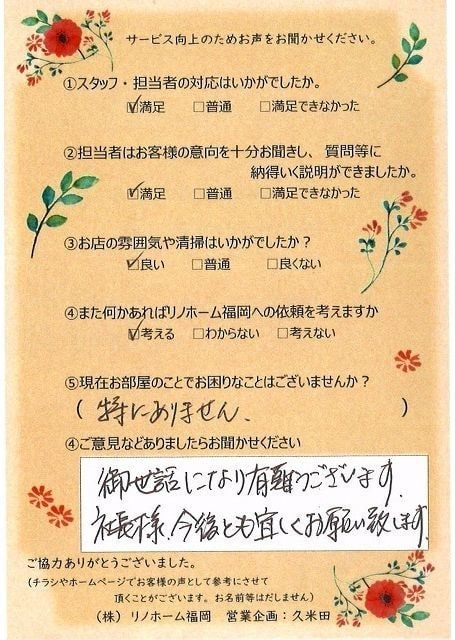 サービス向上のためお声をお聞かせください。
①スタッフ・担当者の対応はいかがでしたか。
☑満足 □普通 □満足できなかった
②担当者はお客様の意向を十分お聞きし、質問等に
納得いく説明ができましたか。
☑満足 □普通 □満足できなかった
③お店の雰囲気や清掃はいかがでしたか？
☑良い □普通 □良くない
④また何かあればリノホーム福岡への依頼を考えますか
☑考える □わからない □考えない
⑤現在お部屋のことでお困りなことはございませんか？
（ 特にありません、 ）
④ご意見などありましたらお聞かせください
御世話になり有難うございます、
社長様、今後とも宜しくお願い致します
ご協力ありがとうございました。
（チラシやホームページでお客様の声として参考にさせて
頂くことがございます。お名前等はだしません）
（株）リノホーム福岡 営業企画：久米田